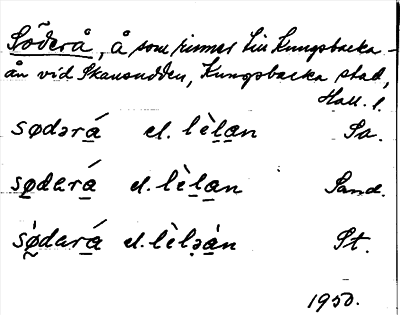 Söderå, å som rinner till Kungsbacka-
ån vid Skansudden, Kungsbacka stad,
Hall. l.
sødərá el. lèlan Sa.
sødará el. lèlan Sand.
sødará el. lèləàn St.
1950.